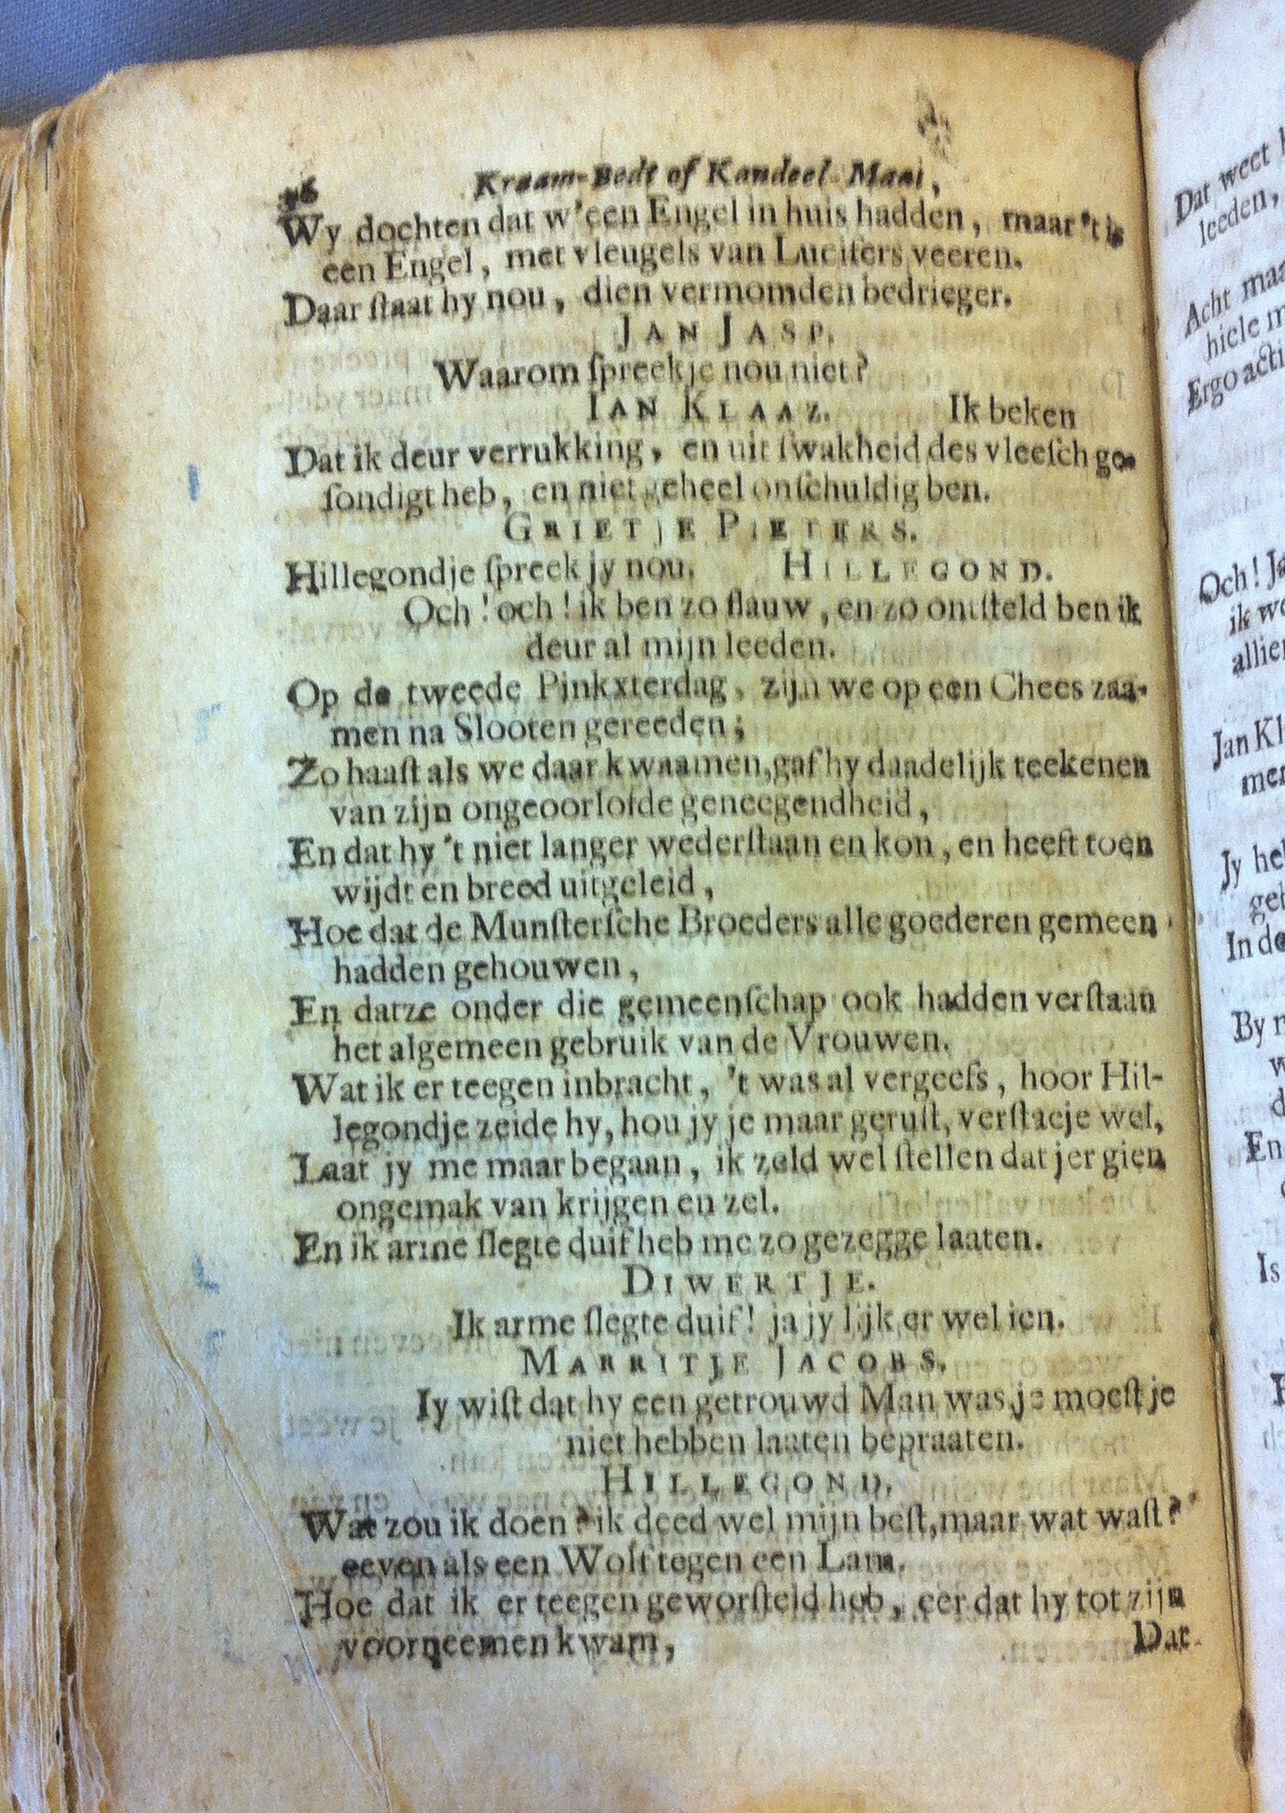 Kraam-Bedt of Kandeel-Maal,
Wy dochten dat w'een Engel in huis hadden, maar 't is
een Engel, met vleugels van Lucifers veeren.
Daar ſtaat hy nou, dien vermomden bedrieger.
JAN JASP.
Waarom ſpreekje nou niet?
IAN KLAAZ. Ik beken
Dat ik deur verrukking, en uit ſwakheid des vleeſch ge-
ſondigt heb, en niet geheel onſchuldig ben.
GRIETJE PIETERS.
Hillegondje ſpreek jy nou. HILLEGOND.
Och! och! ik ben zo flauw, en zo ontſteld ben ik
deur al mijn leeden.
Op de tweede Pinkxterdag, zijn we op een Chees zaa-
men na Slooten gereeden;
Zo haaſt als we daar kwaamen, gaf hy daadelijk teekenen
van zijn ongeoorlofde geneegendheid,
En dat hy 't niet langer wederſtaan en kon, en heeft toen
wijdt en breed uitgeleid,
Hoe dat de Munſterſche Broeders alle goederen gemeen
hadden gehouwen,
En datze onder die gemeenſchap ook hadden verſtaan
het algemeen gebruik van de Vrouwen.
Wat ik er teegen inbracht, 't was al vergeefs, hoor Hil-
legondje zeide hy, hou jy je maar geruſt, verſtaeje wel,
Laat jy me maar begaan, ik zeld wel ſtellen dat jer gien
ongemak van krijgen en zel.
En ik arme ſlegte duif heb me zo gezegge laaten.
DIWERTJE.
Ik arme ſlegte duif! ja jy lijk er wel ien.
MARRITJE JACOBS.
Iy wiſt dat hy een getrouwd Man was, je moeſt je
niet hebben laaten bepraaten.
HILLEGOND.
Wat zou ik doen? ik deed wel mijn beſt, maar wat waſt?
eeven als een Wolf tegen een Lam.
Hoe dat ik er teegen geworſteld heb, eer dat hy tot zijn
voorneemen kwam,
Dat
Dat weet
leeden,
Acht
hiele
Ergo
Och!
ik
Jan
Jy
In
By
En
Is